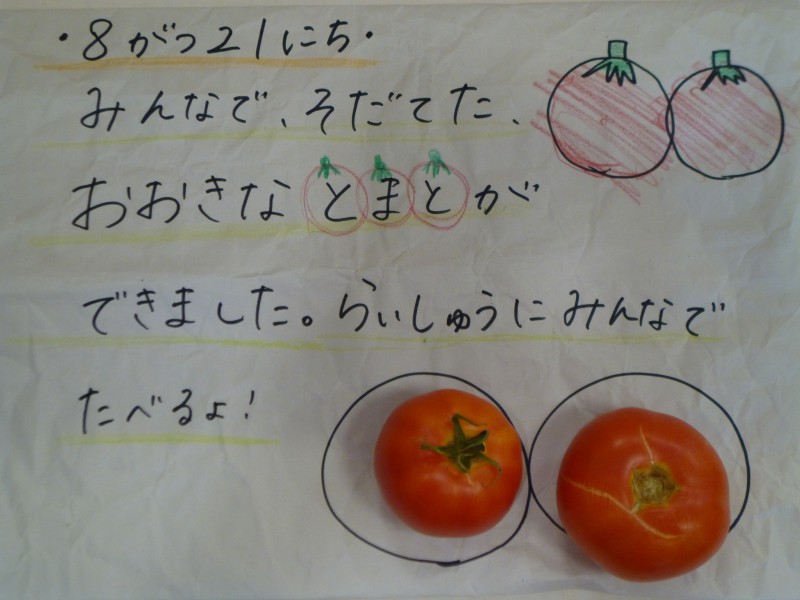 ・8がつ21にち・
みんなで、そだてた、
おおきなとまとが
できました。らいしゅうにみんなで
たべるよ!